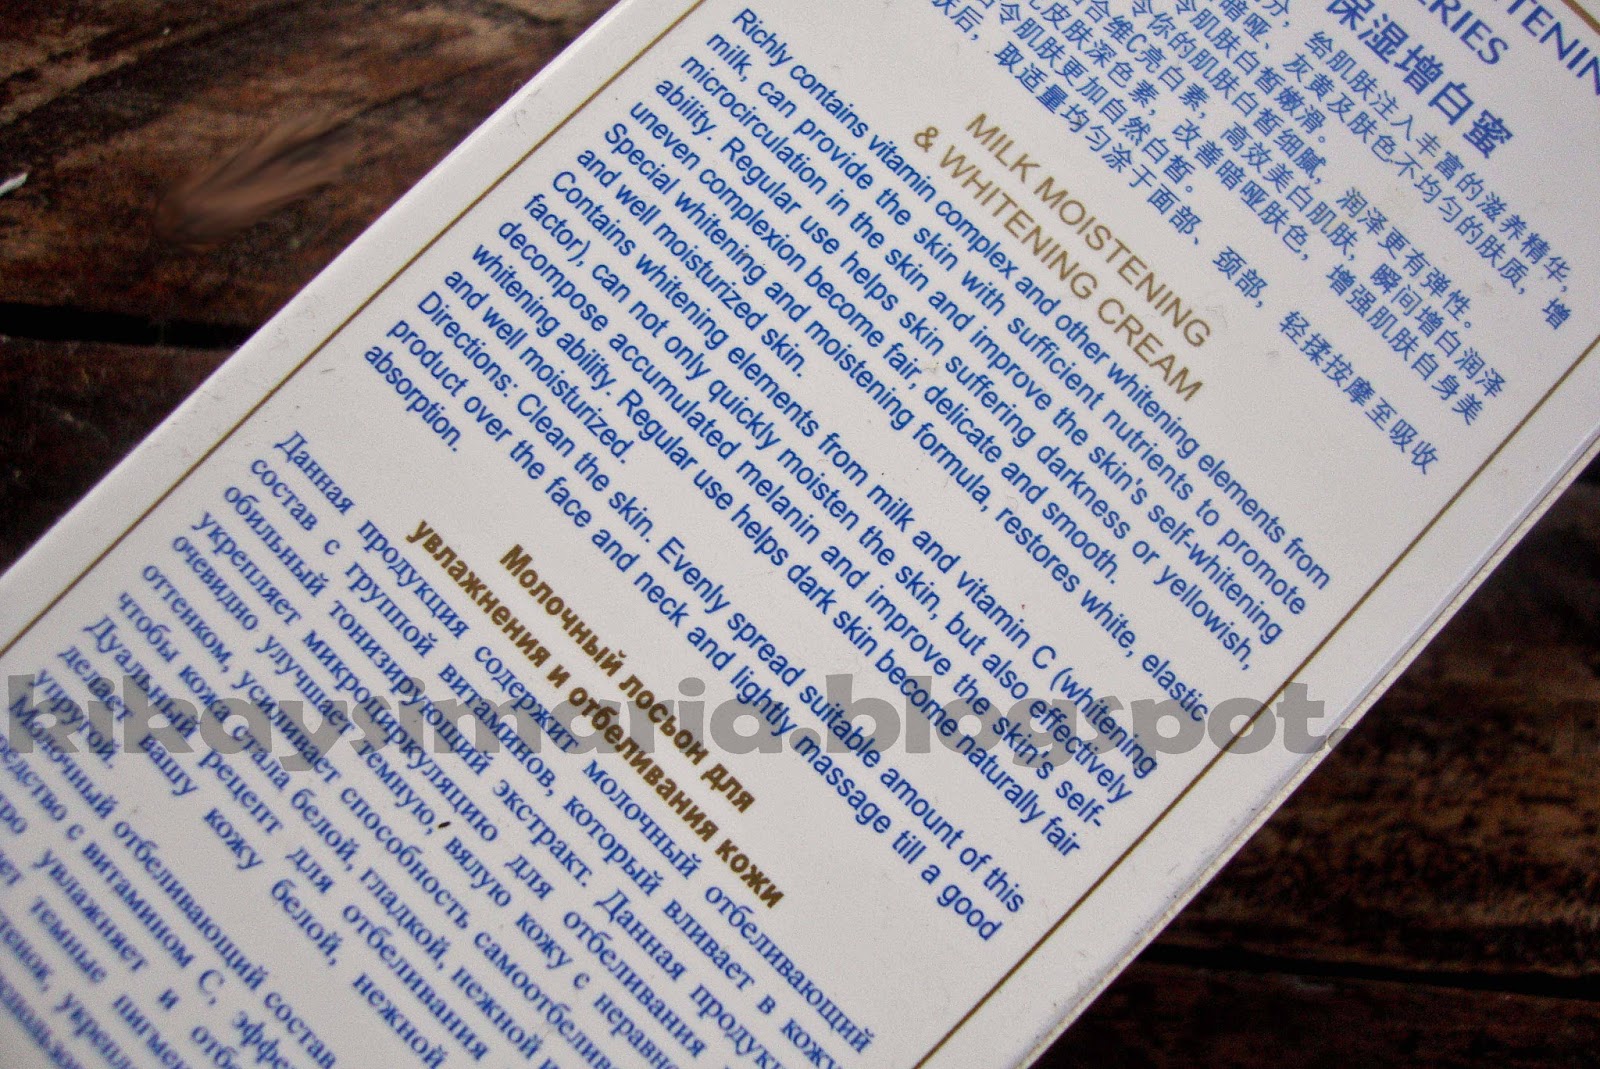 TENIN
ERIES
保湿增白蜜
给肌肤注入丰富的滋养精华，增
灰黄及肤色不均匀的肤质，增
令肌肤白皙嫩滑。
令你的肌肤白皙细腻，润泽更有弹性。
合维C亮白素，高效美白肌肤，瞬间增白润泽
皮肤深色素，改善暗哑肤色，增强肌肤自身美
令肌肤更加自然白皙。
肤后，取适量均匀涂于面部、颈部，轻揉按摩至吸收
MILK MOISTENING
& WHITENING CREAM
Richly contains vitamin complex and other whitening elements from
milk, can provide the skin with sufficient nutrients to promote
microcirculation in the skin and improve the skin's self-whitening
ability. Regular use helps skin suffering darkness or yellowish,
uneven complexion become fair, delicate and smooth.
Special whitening and moistening formula, restores white, elastic
and well moisturized skin.
Contains whitening elements from milk and vitamin C (whitening
factor), can not only quickly moisten the skin, but also effectively
decompose accumulated melanin and improve the skin's self-
whitening ability. Regular use helps dark skin become naturally fair
and well moisturized.
Directions: Clean the skin. Evenly spread suitable amount of this
product over the face and neck and lightly massage till a good
absorption.
Молочный лосьон для
увлажнения и отбеливания кожи
Данная продукция содержит молочный отбеливающий
состав с группой витаминов, который вливает в кожу
обильный тонизирующий экстракт. Данная продук
укрепляет микроциркуляцию для отбеливания
очевидно улучшает темную, вялую кожу с неравн
оттенком, усиливает способность самоотбелив
чтобы кожа стала белой, гладкой, нежной и
Дуальный рецепт для отбеливания
делает вашу кожу белой, нежной
упругой.
Молочный отбеливающий состав
редство с витамином C, эффе
ро увлажняет и отбе
ет темные пигмен
тенок, укрепл
kikaysimaria.blogspot